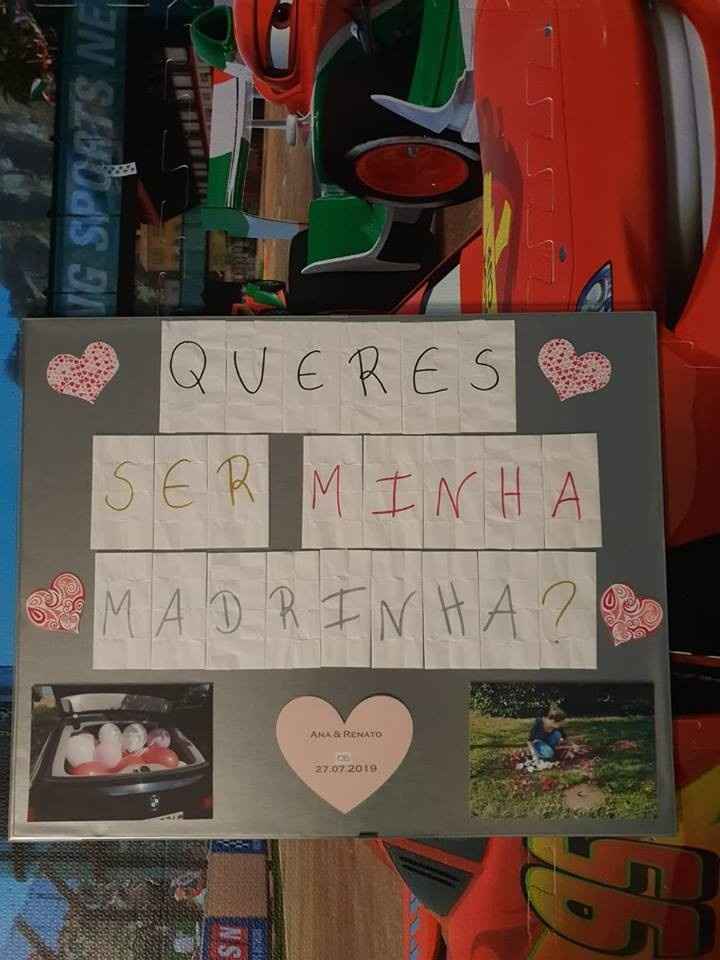 QUERES
SER MINHA
MADRINHA?
ANA & RENATO
27.07.2019
NG SPORTS NE
NS
95